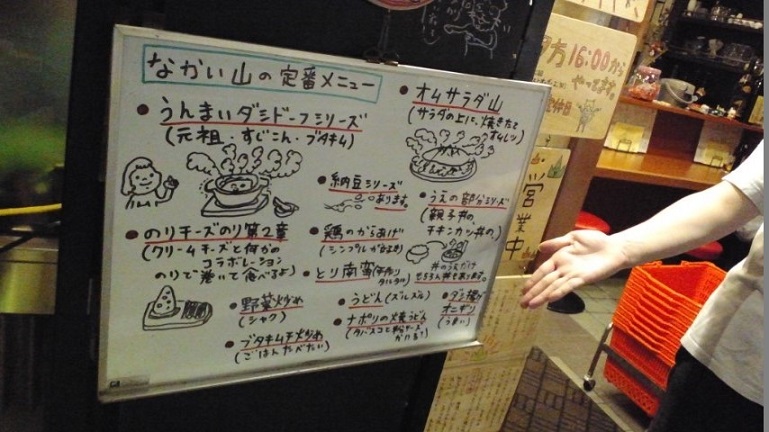 なかい山の定番メニュー
うんまいダシドーフシリーズ
(元祖・すじこん・ブタキム)
のりチーズのり第2章
(クリームチーズと何かの
コラボレーション
のりで巻いて食べるよ)
野菜炒め
(シャク)
ブタキムチ炒め
(ごはんたべたい)
オムサラダ山
(サラダの上に、焼きたて
オムレツ)
納豆シリーズ
あります。
うえの部分シリーズ
(親子丼の
チキンカツ丼の)
丼のうえだけ
もちろん丼もあります。
鶏のからあげ
とり南蛮
うどん(ズルズル)
ナポリの焼うどん
(タバスコと粉チーズ
オニギリ
(うまい)
夕方16:00から
やってます。
営業中